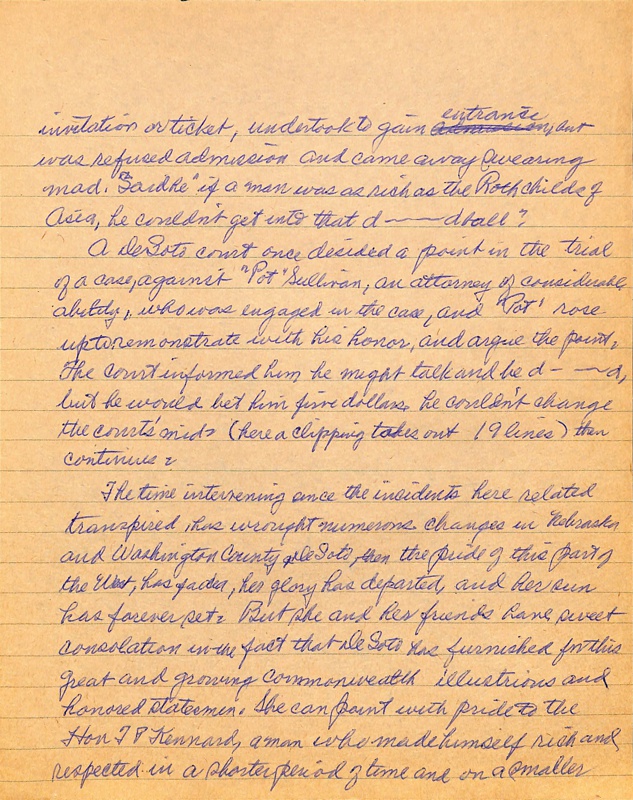 entrance
invitation or ticket, undertook to gain admission, but
was refused admission and came away swearing
mad. Said he "if a man was as rich as the Rothchilds of
Asia, he couldn't get into that d——dball".
A DeSoto court once desided a point in the trial
of a case, against "Pot" Sullivan, an attorney of considerable
ability, who was engaged in the case, and "Pot" rose
up to remonstrate with his honor, and argue the point.
The court informed him he might talk and be d— —d,
but he would bet him five dollars he couldn't change
the courts' mind. (here a clipping takes out 19 lines) then
continues:
The time intervening since the incidents here related
transpired, has wrought numerous changes in Nebraska
and Washington County DeSoto, then the pride of this part of
the West, has faded, her glory has departed, and her sun
has forever set. But she and her friends have sweet
consolation in the fact that DeSoto has furnished for this
great and growing commonwealth illustrious and
honored statesmen. She can point with pride to the
Hon T P Kennard, a man who made himself rich and
respected in a shorter period of time and on a smaller